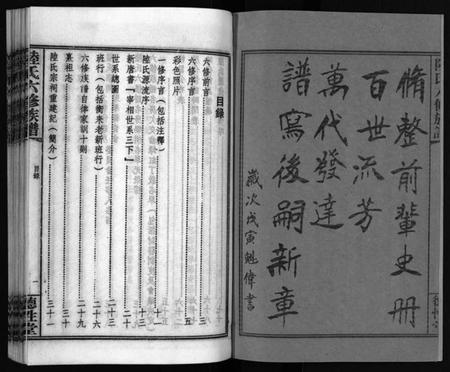 脩整前輩史冊
百世流芳
萬代發達
譜寫後嗣新章
歲次戊寅魁偉書
目錄
六修前言
彩色照片 五
一修序言（包括注釋） 十一
陸氏源流序 十三
新唐書「宰相世系三下」
世系總圖 二十三
班行（包括衡來老新班行） 二十六
六修族譜自律家訓十則 二十九
墓祖志 三十
陸氏宗祠重建紀（簡介） 三十一
陸氏六修族譜
目錄
一
德性堂